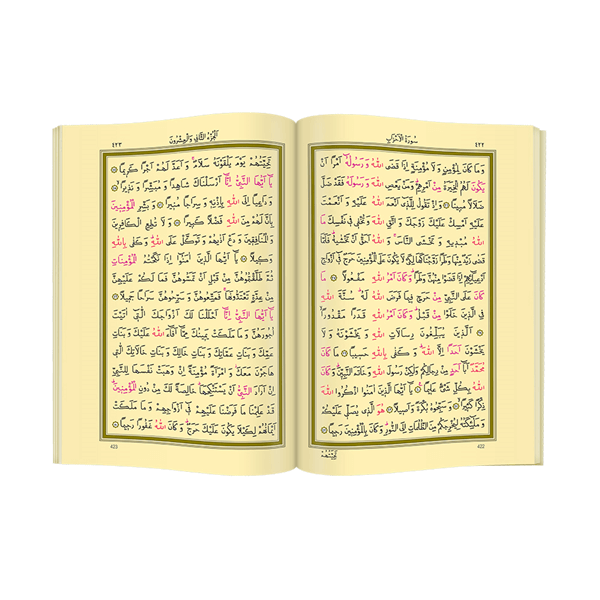 ٤٢٢
سُورَةُ الْاَحْزَابِ
وَمَا كَانَ لِمُؤْمِنٍ وَلَا مُؤْمِنَةٍ اِذَا قَضَى اللّٰهُ وَرَسُولُهُٓ اَمْرًا اَنْ
يَكُونَ لَهُمُ الْخِيَرَةُ مِنْ اَمْرِهِمْ وَمَنْ يَعْصِ اللّٰهَ وَرَسُولَهُ فَقَدْ ضَلَّ
ضَلَالًا مُبِينًا ۝ وَاِذْ تَقُولُ لِلَّذِٓي اَنْعَمَ اللّٰهُ عَلَيْهِ وَاَنْعَمْتَ
عَلَيْهِ اَمْسِكْ عَلَيْكَ زَوْجَكَ وَاتَّقِ اللّٰهَ وَتُخْفِي فِي نَفْسِكَ مَا
اللّٰهُ مُبْدِيهِ وَتَخْشَى النَّاسَ وَاللّٰهُ اَحَقُّ اَنْ تَخْشٰيهُ فَلَمَّا
قَضٰى زَيْدٌ مِنْهَا وَطَرًا زَوَّجْنَاكَهَا لِكَيْ لَا يَكُونَ عَلَى الْمُؤْمِنِينَ حَرَجٌ فِٓي اَزْوَاجِ
اَدْعِيَٓائِهِمْ اِذَا قَضَوْا مِنْهُنَّ وَطَرًا وَكَانَ اَمْرُ اللّٰهِ مَفْعُولًا ۝ مَا
كَانَ عَلَى النَّبِيِّ مِنْ حَرَجٍ فِيمَا فَرَضَ اللّٰهُ لَهُ سُنَّةَ اللّٰهِ
فِي الَّذِينَ خَلَوْا مِنْ قَبْلُ وَكَانَ اَمْرُ اللّٰهِ قَدَرًا مَقْدُورًا
۝ اَلَّذِينَ يُبَلِّغُونَ رِسَالَاتِ اللّٰهِ وَيَخْشَوْنَهُ وَلَا
يَخْشَوْنَ اَحَدًا اِلَّا اللّٰهَ وَكَفٰى بِاللّٰهِ حَسِيبًا ۝ مَا كَانَ
مُحَمَّدٌ اَبَٓا اَحَدٍ مِنْ رِجَالِكُمْ وَلٰكِنْ رَسُولَ اللّٰهِ وَخَاتَمَ النَّبِيِّنَ وَكَانَ
اللّٰهُ بِكُلِّ شَيْءٍ عَلِيمًا ۝ يَٓا اَيُّهَا الَّذِينَ اٰمَنُوا اذْكُرُوا اللّٰهَ
ذِكْرًا كَثِيرًا ۝ وَسَبِّحُوهُ بُكْرَةً وَاَصِيلًا ۝ هُوَ الَّذِي يُصَلِّي عَلَيْكُمْ
وَمَلٰٓئِكَتُهُ لِيُخْرِجَكُمْ مِنَ الظُّلُمَاتِ اِلَى النُّورِ وَكَانَ بِالْمُؤْمِنِينَ رَحِيمًا ۝
422
تَحِيَّتُهُمْ
اَلْجُزْءُ الثَّانِي وَالْعِشْرُونَ
٤٢٣
تَحِيَّتُهُمْ يَوْمَ يَلْقَوْنَهُ سَلَامٌ وَاَعَدَّ لَهُمْ اَجْرًا كَرِيمًا ۝
يَٓا اَيُّهَا النَّبِيُّ اِنَّٓا اَرْسَلْنَاكَ شَاهِدًا وَمُبَشِّرًا وَنَذِيرًا ۝
وَدَاعِيًا اِلَى اللّٰهِ بِاِذْنِهِ وَسِرَاجًا مُنِيرًا ۝ وَبَشِّرِ الْمُؤْمِنِينَ
بِاَنَّ لَهُمْ مِنَ اللّٰهِ فَضْلًا كَبِيرًا ۝ وَلَا تُطِعِ الْكَافِرِينَ
وَالْمُنَافِقِينَ وَدَعْ اَذٰيهُمْ وَتَوَكَّلْ عَلَى اللّٰهِ وَكَفٰى بِاللّٰهِ
وَكِيلًا ۝ يَٓا اَيُّهَا الَّذِينَ اٰمَنُٓوا اِذَا نَكَحْتُمُ الْمُؤْمِنَاتِ
ثُمَّ طَلَّقْتُمُوهُنَّ مِنْ قَبْلِ اَنْ تَمَسُّوهُنَّ فَمَا لَكُمْ عَلَيْهِنَّ
مِنْ عِدَّةٍ تَعْتَدُّونَهَا فَمَتِّعُوهُنَّ وَسَرِّحُوهُنَّ سَرَاحًا جَمِيلًا ۝
يَٓا اَيُّهَا النَّبِيُّ اِنَّٓا اَحْلَلْنَا لَكَ اَزْوَاجَكَ الّٰتِٓي اٰتَيْتَ
اُجُورَهُنَّ وَمَا مَلَكَتْ يَمِينُكَ مِمَّٓا اَفَٓاءَ اللّٰهُ عَلَيْكَ وَبَنَاتِ
عَمِّكَ وَبَنَاتِ عَمَّاتِكَ وَبَنَاتِ خَالِكَ وَبَنَاتِ خَالَاتِكَ الّٰتِي
هَاجَرْنَ مَعَكَ وَامْرَاَةً مُؤْمِنَةً اِنْ وَهَبَتْ نَفْسَهَا لِلنَّبِيِّ
اِنْ اَرَادَ النَّبِيُّ اَنْ يَسْتَنْكِحَهَا خَالِصَةً لَكَ مِنْ دُونِ الْمُؤْمِنِينَ
قَدْ عَلِمْنَا مَا فَرَضْنَا عَلَيْهِمْ فِٓي اَزْوَاجِهِمْ وَمَا مَلَكَتْ
اَيْمَانُهُمْ لِكَيْلَا يَكُونَ عَلَيْكَ حَرَجٌ وَكَانَ اللّٰهُ غَفُورًا رَحِيمًا ۝
423